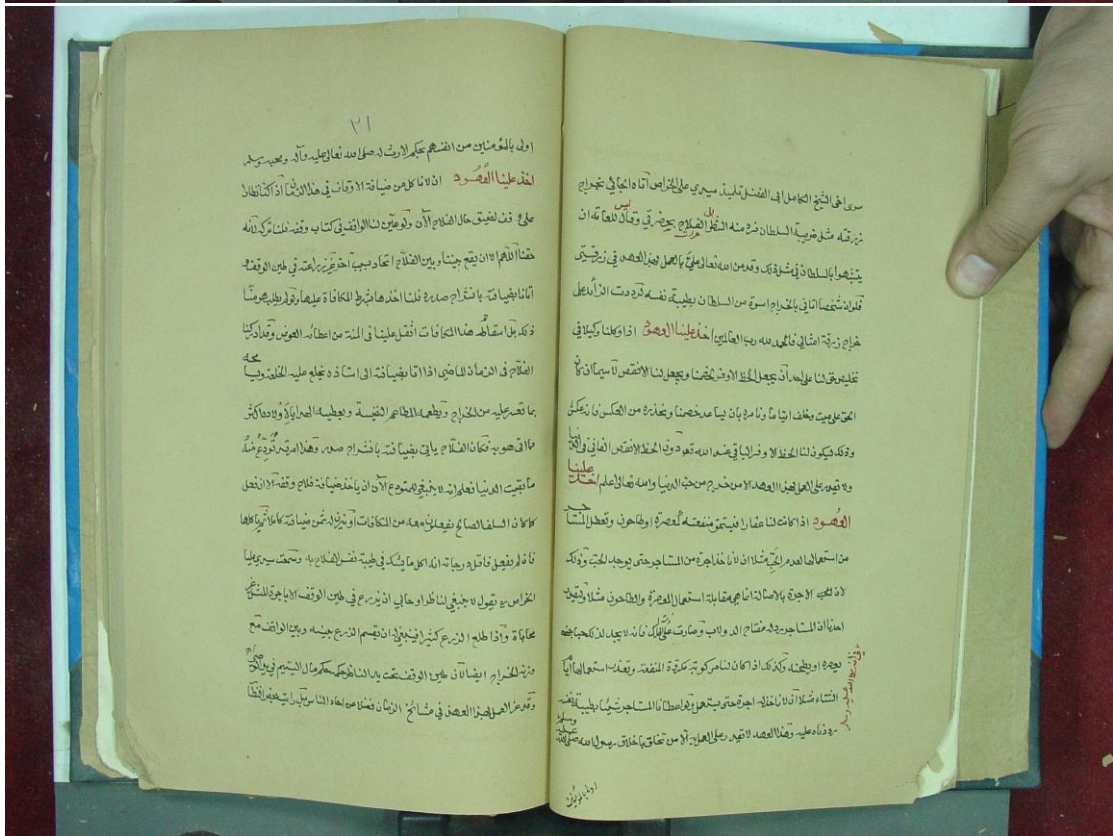 سوى اخى الشيخ الكامل ابى الفضل تلميذ سيدي على الخواص اتاه الجابي بخراج
زرقته مثل ضريبة السلطان فرده منه النظر الى الفلاح بحضرتي وقال ليس للعامة ان
يتشبهوا بالسلطان في مثل ذلك وقد من الله تعالى علي بالعمل بهذا العهد في رزقتي
فلو ان شخصا اتاني بالخراج اسوة من السلطان بطيبة نفسه لرددت الزائد على
خراج رزقة امثالي فالحمد لله رب العالمين اخذ علينا العهود اذا وكلنا وكيلا في
تخليص حق لنا على احد ان يجعل الحظ الاوفر لخصمنا ويجعل لنا الانقص لا سيما ان كان
الحق على ميت وخلف ايتاما ونامره بان يساعد خصمنا ونحذره من العكس فانه عكس
وذلك ليكون لنا الحظ الاوفر الباقي عند الله تعالى دون الحظ الانقص الفاني في الدنيا
ولا يقدر على العمل بهذا العهد الا من خرج من حب الدنيا والله تعالى اعلم اخذ علينا
العهود اذا كانت لنا عقارا فيتموق منفعته كمعصرة او طاحون وتعطل المستاجر
من استعمالها لعدم الحب مثلا ان لا ناخذ اجرة من المستاجر حتى يوجد الحب وذلك
لان لنا الاجرة بالاصالة انما هي مقابلة استعمال المعصرة والطاحون مثلا وتقدير
احدنا ان المستاجر بيده مفتاح الدولاب وصارت فانه لا يجد لذلك حبا
يعصره او يطحنه وكذلك اذا كان لنا مركوبة مكرية المنفعة وتعذر استعمالها ايام
الشتاء مثلا ان لا ناخذ له اجرة حتى يستعمل ولو اعطانا المستاجر شيئا بطيبة نفسه
رددناه عليه وهذا العهد لا يقدر على العمل به الا من تخلق باخلاق رسول الله صلى الله عليه وسلم
اولى بالمؤمنين
٢١
اولى بالمؤمنين من انفسهم بحكم الارث له صلى الله تعالى عليه وآله وصحبه وسلم
اخذ علينا العهود ان لا ناكل من ضيافة الاوقاف في هذا الزمان اذا كنا نظارا
على وقف لضيق حال الفلاح الآن ولو عين لنا الواقف في كتاب وقفه فلنا تركه لانه
حقنا اللهم الا ان يقع بيننا وبين الفلاح اتحاد بسبب آخر غير زراعته في طين الوقف و
اتانا بضيافة بانشراح صدره فلنا اخذها بشرط المكافاة عليها ولو لم يطلب هو منا
ذلك بل اسقاطه هذا المكافات اثقل علينا في المنة من اعطائه العوض وقد ادركنا
الفلاح في الزمان الماضي اذا اتا بضيافة الى استاذه يخلع عليه الخلعة ويسامحه
بما تعسر عليه من الخراج ويطعمه المطاعم النفيسة ويعطيه الصرايا لاولاده اكثر
مما اتى هو به فكان الفلاح ياتي بضيافة بانشراح صدره وهذا امر قد تودع منه
ما بقيت الدنيا فعلم انه لا ينبغي للمتورع الآن ان ياخذ ضيافة فلاح وقفه الا ان فعل
كما كان السلف الصالح يفعلون معه من المكافات او يزن له ثمن ضيافة كاملا ثم ياكلها
فان لم يفعل فاقل درجاته انه اكل ما يشك في طيبة نفس الفلاح به وسمعت سيدي عليا
الخواص ره يقول لا ينبغي لناظر او جابي ان يزرع في طين الوقف الا باجرة المثل من غير
محاباة واذا طلع الزرع كثيرا فينبغي له ان يقسم الزرع بينه وبين الواقف مع
وزنه الخراج ايضا لان طين الوقف تحت يد الناظر حكمه حكم مال اليتيم في يد الوصي
وقد عز العمل بهذا العهد في مشائخ الزمان فضلا من احاد الناس بل رايت بعض